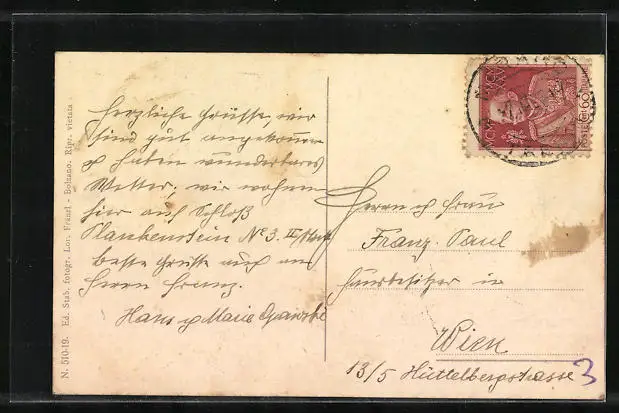 N. 510-19. Ed. Stab. fotogr. Leo. Fränzl - Bolzano. Ripr. vietata
herzliche Grüsse, wir
sind gut angekommen
& haben wunderbares
Wetter, wir wohnen
hier auf Schloß
Plankenstein No 3. II/
beste Grüsse auch an
Herrn Franz.
Hans & Marie
Herrn & Frau
Franz Paul
Hausbesitzer in
Wien
13/5 Hüttelbergstrasse 3
60